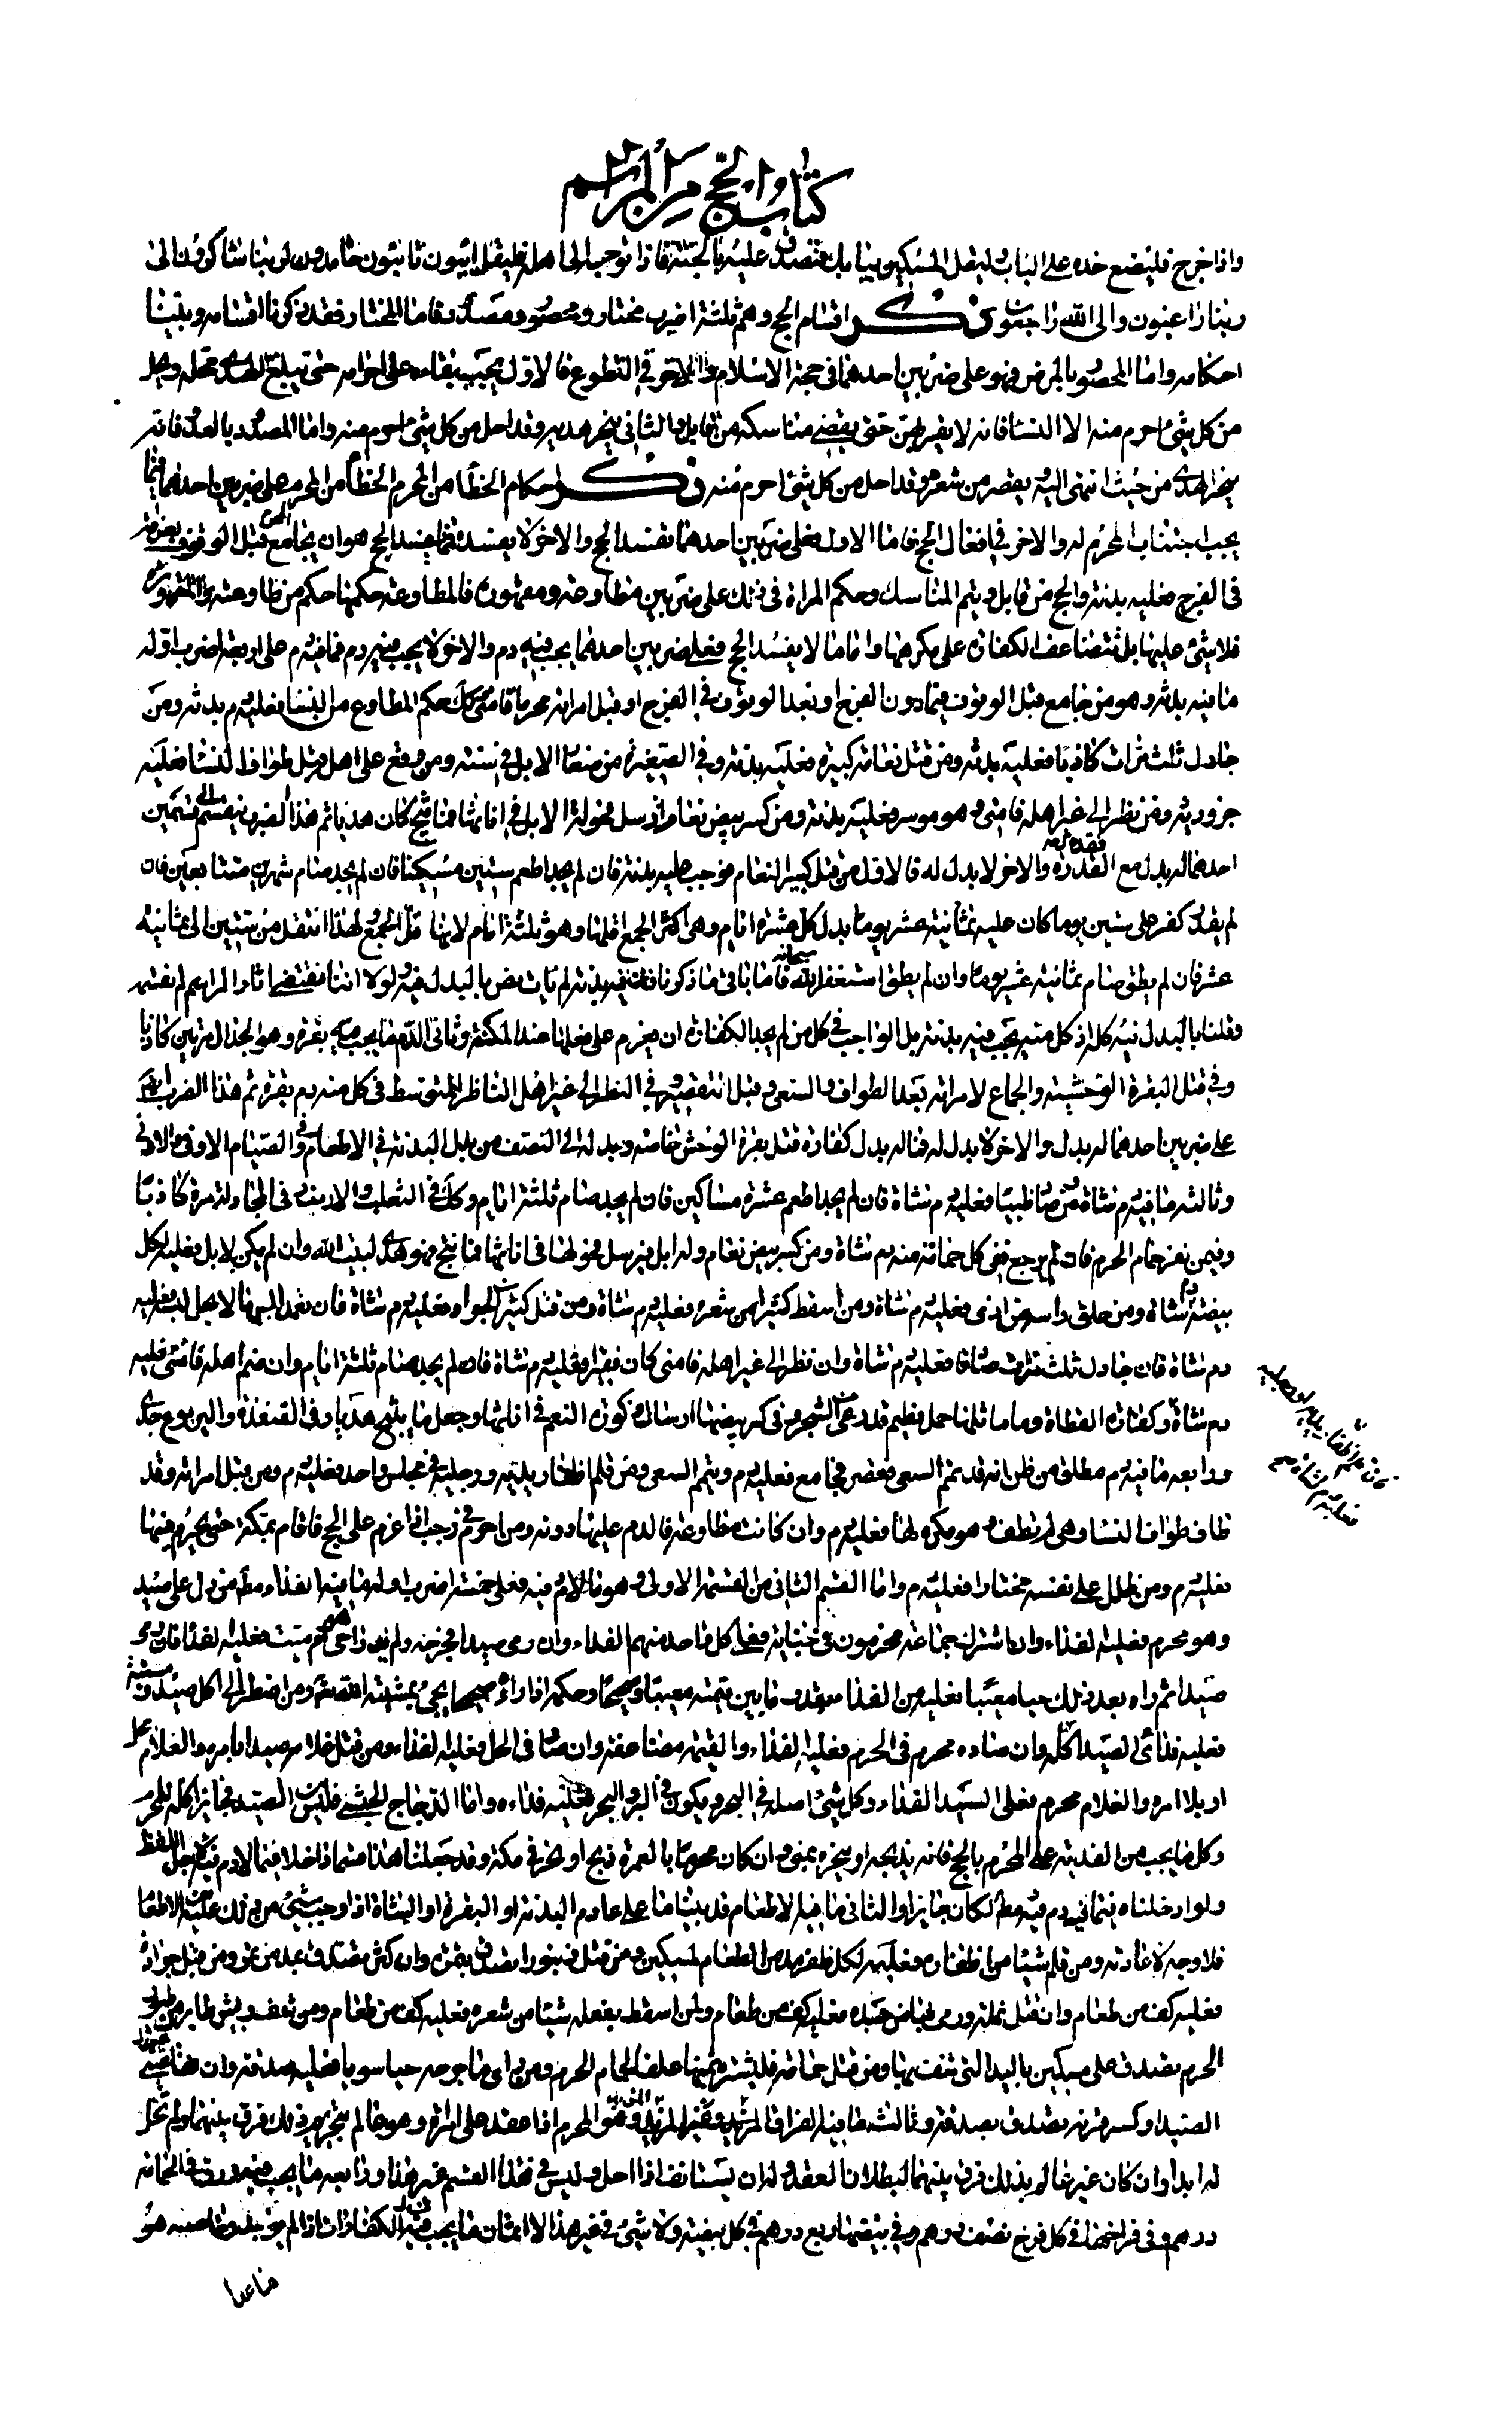 كتاب الحج من المراسم
واذا خرج فليضع خده على الباب وليقل المسكين ببابك فتصدق عليه بالجنة فاذا توجه الى اهله فليقل ائبون تائبون حامدون لربنا شاكرون الى
ربنا راغبون والى الله راجعون ذكر اقسام الحج وهم ثلثة اضرب مختار ومحصور ومصدود فاما المختار فقد ذكرنا اقسامه وبينا
احكامه واما المحصور بالمرض فهو على ضربين احدهما في حجة الاسلام والاخر في التطوع فالاول يجب بقاءه على احرامه حتى يبلغ الهدى محله ويحل
من كل شئ احرم منه الا النسا فانه لا يقربهن حتى يقضى مناسكه من قابل والثاني ينحر هديه وقد احل من كل شئ احرم منه واما المصدود بالعدو فانه
ينحر الهدى من حيث انتهى اليه يقصر من شعره وقد احل من كل شئ احرم منه ذكر احكام الخطأ من المحرم الخطأ من المحرم على ضربين احدهما فيما
يجب اجتناب المحرم له والاخر في افعال الحج فاما الاول فعلى ضربين احدهما تفسد الحج والاخر لا يفسده فما يفسد الحج هو ان يجامع قبل الوقوف بعرفة
في الفرج فعليه بدنة والحج من قابل ويتم المناسك وحكم المراة في ذلك على ضربين مطاوعة ومقهورة فالمطاوعة حكمها حكم من طاوعته والمقهورة
فلا شئ عليها بل تتضاعف الكفارة على مكرهها واما ما لا يفسد الحج فعلى ضربين احدهما يجب فيه دم والاخر لا يجب فيه دم فما فيه دم على اربعة اضرب اوله
ما فيه بدنة وهو من جامع قبل الوقوف فيما دون الفرج او بعد الوقوف في الفرج او قبل امراته محرما فامنى وكك حكم المطاوع من النسا فعليه دم بدنة ومن
جادل ثلث مرات كاذبا فعليه بدنة ومن قتل نعامة كبيرة فعليه بدنة وفي الصغيرة من صغار الابل في سنته ومن وقع على اهله قبل طواف النسا فعليه
جزور ومن نظر الى غير اهله فامنى وهو موسر فعليه بدنة ومن كسر بيض نعام ارسل فحولة الابل في اناثها فما نتج كان هديا ثم هذا الضرب ينقسم الى قسمين
احدهما له بدل مع فقده والاخر لا بدل له فالاول من قتل كبير النعام فوجب عليه بدنة فان لم يجد اطعم ستين مسكينا فان لم يجد صام شهرين متتابعين فان
لم يقدر كفر على ستين يوما كان عليه ثمانية عشر يوما بدل كل عشرة ايام وهي اكثر الجمع اقلها وهو ثلثة ايام لانها قل الجمع لهذا انتقل من ستين الى ثمانية
عشر فان لم يطق صيام ثمانية عشر يوما وان لم يطق استغفر الله سبحانه فاما باقي ما ذكرنا فان فيه بدنة لم يات نص بالبدل فيه ولولا اننا نقتضى اثار المراسم لم نفته
وقلنا بالبدل فيه كله اذ كل منه يجب فيه بدنة بل الواجب في كل من لم يجد الكفارة ان يعزم على فعلها عند المكنة وثاني الدم ما يجب فيه بقرة وهو الجدال مرتين كاذبا
وفي قتل البقرة الوحشية والجماع لامراته بعد الطواف والسعي وقبل التقصير وفي النظر الى غير اهل الناظر المتوسط في كل منه دم بقرة ثم هذا الضرب ايضا
على ضربين احدهما له بدل والاخر لا بدل له فماله بدل كفارة قتل بقرة الوحش خاصة وبدله الى النصف من بدل البدنة في الاطعام وفي الصيام الاوفى والادنى
وثالثه ما فيه دم شاة فمن صاد ظبيا فعليه دم شاة فان لم يجد اطعم عشرة مساكين فان لم يجد صام ثلثة ايام وكك في الثعلب والارنب وفي المجادلة مرة كاذبا
وفيمن نفر حمام الحرم فان لم يرجع ففي كل حمامة منه دم شاة ومن كسر بيض نعام وله ابل فيرسل فحولها في اناثها فما نتج فهو هدى لبيت الله وان لم يكن له ابل فعليه لكل
بيضة دم شاة ومن حلق راسه من اذى فعليه دم شاة ومن اسقط كثيرا من شعره فعليه دم شاة ومن قتل كثير الجراد فعليه دم شاة فان تعمد لبس ما لا يحل لبسه فعليه
دم شاة فان جادل ثلث مرات صادقا فعليه دم شاة وان نظر الى غير اهله فامنى كان فقيرا فعليه دم شاة فان لم يجد صام ثلثة ايام وان ضم اهله فامنى فعليه
دم شاة وكفارة القطاة وما ماثلها حمل فطيم قد رعى من الشجر وفي كسر بيضها ارسال ذكورة الغنم في اناثها وجعل ما ينتج هديا وفي القنفذ واليربوع جدى
ورابعه ما فيه دم مطلق من ظن انه قد تمم السعى فقصر فجامع فعليه دم ويتم السعى ومن قلم اظفار يديه ورجليه في مجلس واحد فعليه دم ومن قبل امراته وقد
طاف طواف النسا وهي لم تطف وهو مكره لها فعليه دم وان كانت مطاوعة فالدم عليها دونه ومن احرم في رجب اذا عزم على الحج فاقام بمكة حتى يحرم فيها
فعليه دم ومن ظلل على نفسه مختارا فعليه دم واما القسم الثاني من القسمة الاولى وهو ما لا دم فيه فعلى خمسة اضرب اوله ما فيه الفداء مط من دل على صيد
وهو محرم فعليه الفداء وان اشترك جماعة محرمون في جناية فعلى كل واحد منهم الفداء وان رمى صيدا فجرحه ولم يدر احى هو ام ميت فعليه الفدا فان رمى
صيدا ثم راه بعد ذلك حيا معيبا فعليه من الفداء بقدر ما بين قيمته معيبا وصحيحا وحكمه اذا راه صحيحا يجئ بمشية الله تعالى ومن اضطر الى اكل صيد وميتة
فعليه فداء الصيد اكله وان صاده محرم في الحرم فعليه الفداء والقيمة مضاعفة وان صاد في الحل فعليه الفداء ومن قتل غلامه صيدا بامره والغلام محل
او بلا امره والغلام محرم فعلى السيد الفداء وكل شئ اصله في البحر ويكون في البر والبحر فعليه فداءه واما الدجاج الحبشى فليس من الصيد فجايز اكله للمحرم
وكل ما يجب من الفدية على المحرم بالحج فانه يذبحه او ينحره بمنى وان كان محرما بالعمرة ذبح او نحر في مكة وقد جعلنا هذا قسما داخلا فيما لا دم فيه لاجل اللفظ
ولو ادخلناه فيما فيه دم فيه مط لكان جايزا والثاني ما فيه الاطعام قد بينا ما على عادم البدنة او البقرة او الشاة اذا وجب شئ من ذلك عليه من الاطعام
فلا وجه لاعادته ومن قلم شيئا من اظفاره فعليه لكل ظفر مد من الطعام لمسكين ومن قتل زنبورا تصدق بتمرة وان كثر تصدق بمد من تمر ومن قتل جرادة
فعليه كف من طعام وان قتل قملة ورمى بها من جسده فعليه كف من طعام ولمن اسقط بفعله شيئا من شعره فعليه كف من طعام ومن نتف ريش طاير من طيور
الحرم تصدق على مسكين باليد التي نتف بها ومن قتل حمامة فليشتر بثمنها علفا لحمام الحرم ومن راى ما جرحه حيا سويا فعليه صدقة وان
الصيد او كسر قرنه تصدق بصدقة وثالثه ما فيه الفراق وهو المحرم اذا عقد على امراة وهو عالم بتحريم ذلك فرق بينهما ولم تحل
له ابدا وان كان غير عالم بذلك فرق بينهما لبطلان العقد وله ان يستانف اذا احل وليس في هذا القسم غير هذا ورابعه ما يجب فيه ورق في الحمامة
درهم وفي فراخها في كل فرخ نصف درهم وفي بيضها ربع درهم في كل بيضة ولا شئ في غير هذا الا اثمان ما يجب فيه الكفارات اذا لم يوجد وخامسه هو
ما عدا